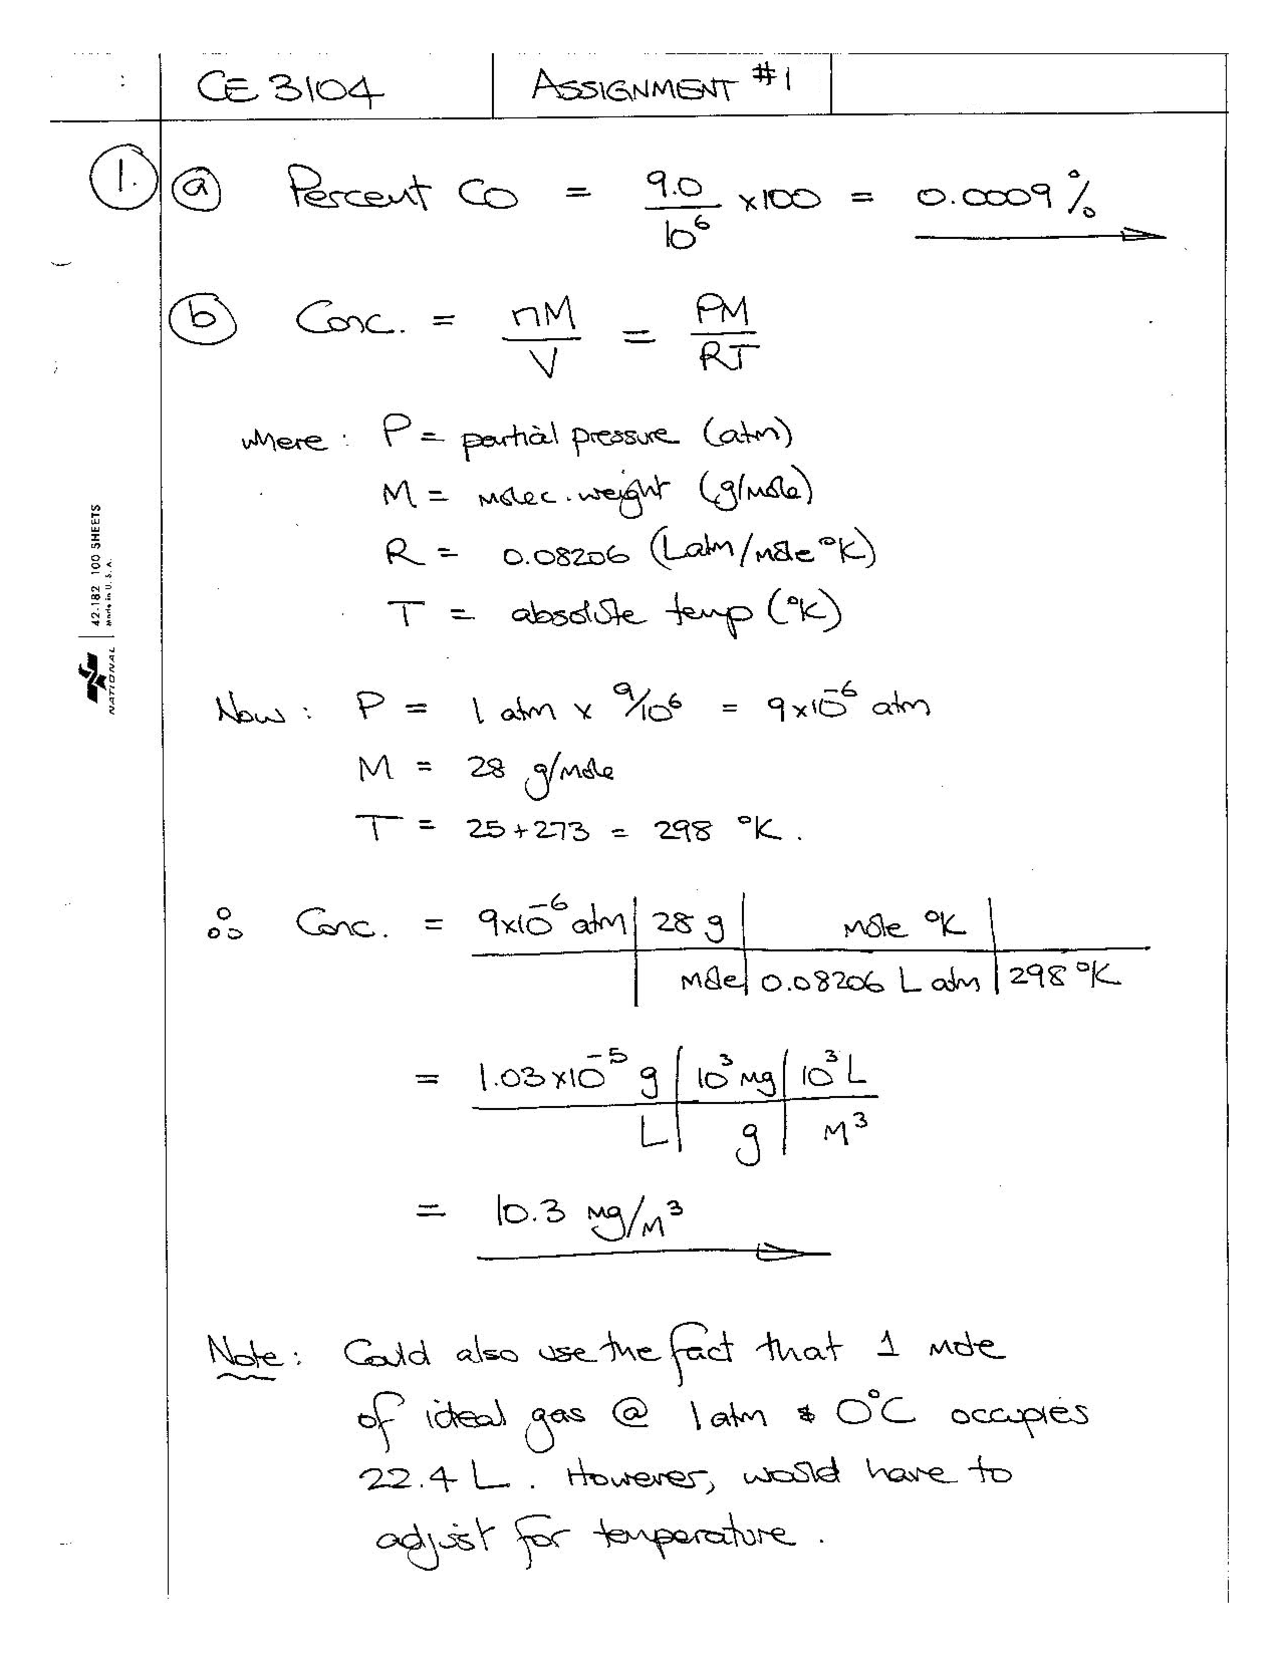 CE 3104 ASSIGNMENT #1
1. a Percent CO = 9.0/10⁶ ×100 = 0.0009 %
b Conc. = nM/V = PM/RT
where : P = partial pressure (atm)
M = molec. weight (g/mole)
R = 0.08206 (L atm/mole °K)
T = absolute temp (°K)
42-182 100 SHEETS
Made in U. S. A.
NATIONAL
Now : P = 1 atm x 9/10⁶ = 9x10⁻⁶ atm
M = 28 g/mole
T = 25+273 = 298 °K.
∴ Conc. = 9x10⁻⁶ atm | 28 g | mole °K |
mole | 0.08206 L atm | 298 °K
= 1.03 x10⁻⁵ g | 10³ mg | 10³ L
L | g | m³
= 10.3 mg/m³
Note : Could also use the fact that 1 mole
of ideal gas @ 1 atm & 0°C occupies
22.4 L. However, would have to
adjust for temperature.